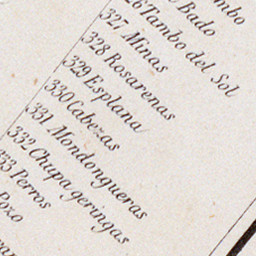 mbo
Bado
Tambo del Sol
327 Minas
328 Rosarenas
329 Esplana
330 Cabezas
331 Mondongueras
332 Chupa geringas
333 Perros
Pozo